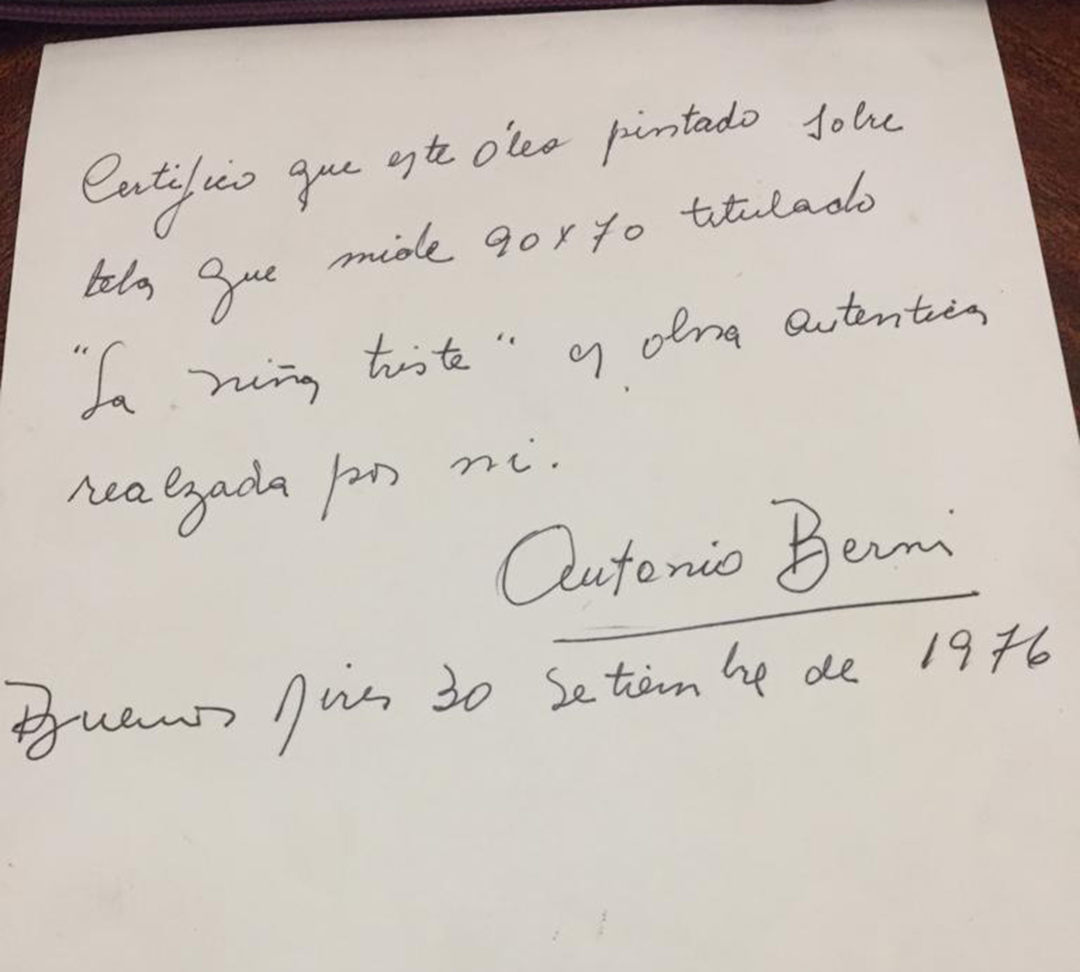 Certifico que este óleo pintado sobre
tela que mide 90 x 70 titulado
"La niña triste" es obra autentica
realzada por mi.
Antonio Berni
Buenos Aires 30 Setiembre de 1976